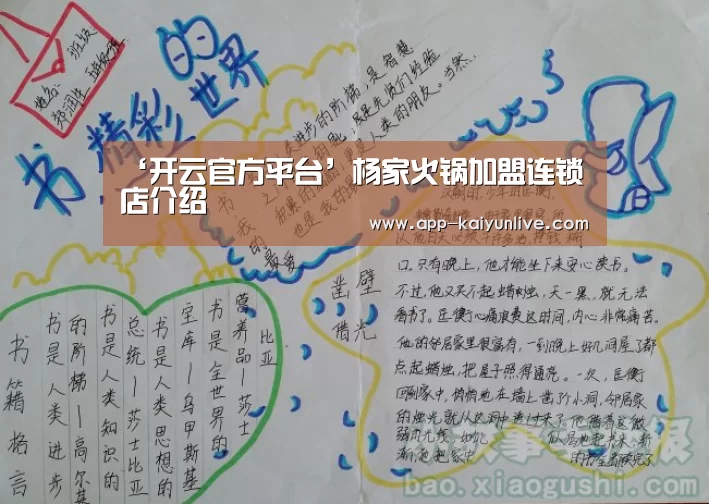 班级
书 精彩的世界
‘开云官方平台’杨家火锅加盟连锁
店介绍
www.app-kaiyunlive.com
类进步的阶梯，是智慧
人类的朋友。当然，
也是我的
我的最爱
口。只有晚上，他才能坐下来安心读书。
不过，他又买不起蜡烛，天一黑，就无法
看书了。匡衡心痛浪费这时间，内心非常痛苦。
他的邻居家里很富有，一到晚上好几间屋子都
点起蜡烛，把屋子照得通亮。一次，匡衡
回到家中，悄悄地在墙上凿了个小洞，邻居家
的烛光就从这洞中透过来了。他借着这微
弱的光线，如饥
似渴地起书来，渐
渐地把家中
的书全都读完了
凿壁
借光
书籍格言
书是人类进步
的阶梯—高尔基
书是人类知识的
总统—莎士比亚
书是人类思想的
宝库—乌申斯基
书是全世界的
营养品—莎士
比亚
故事 报
bao.xiaogushi.com